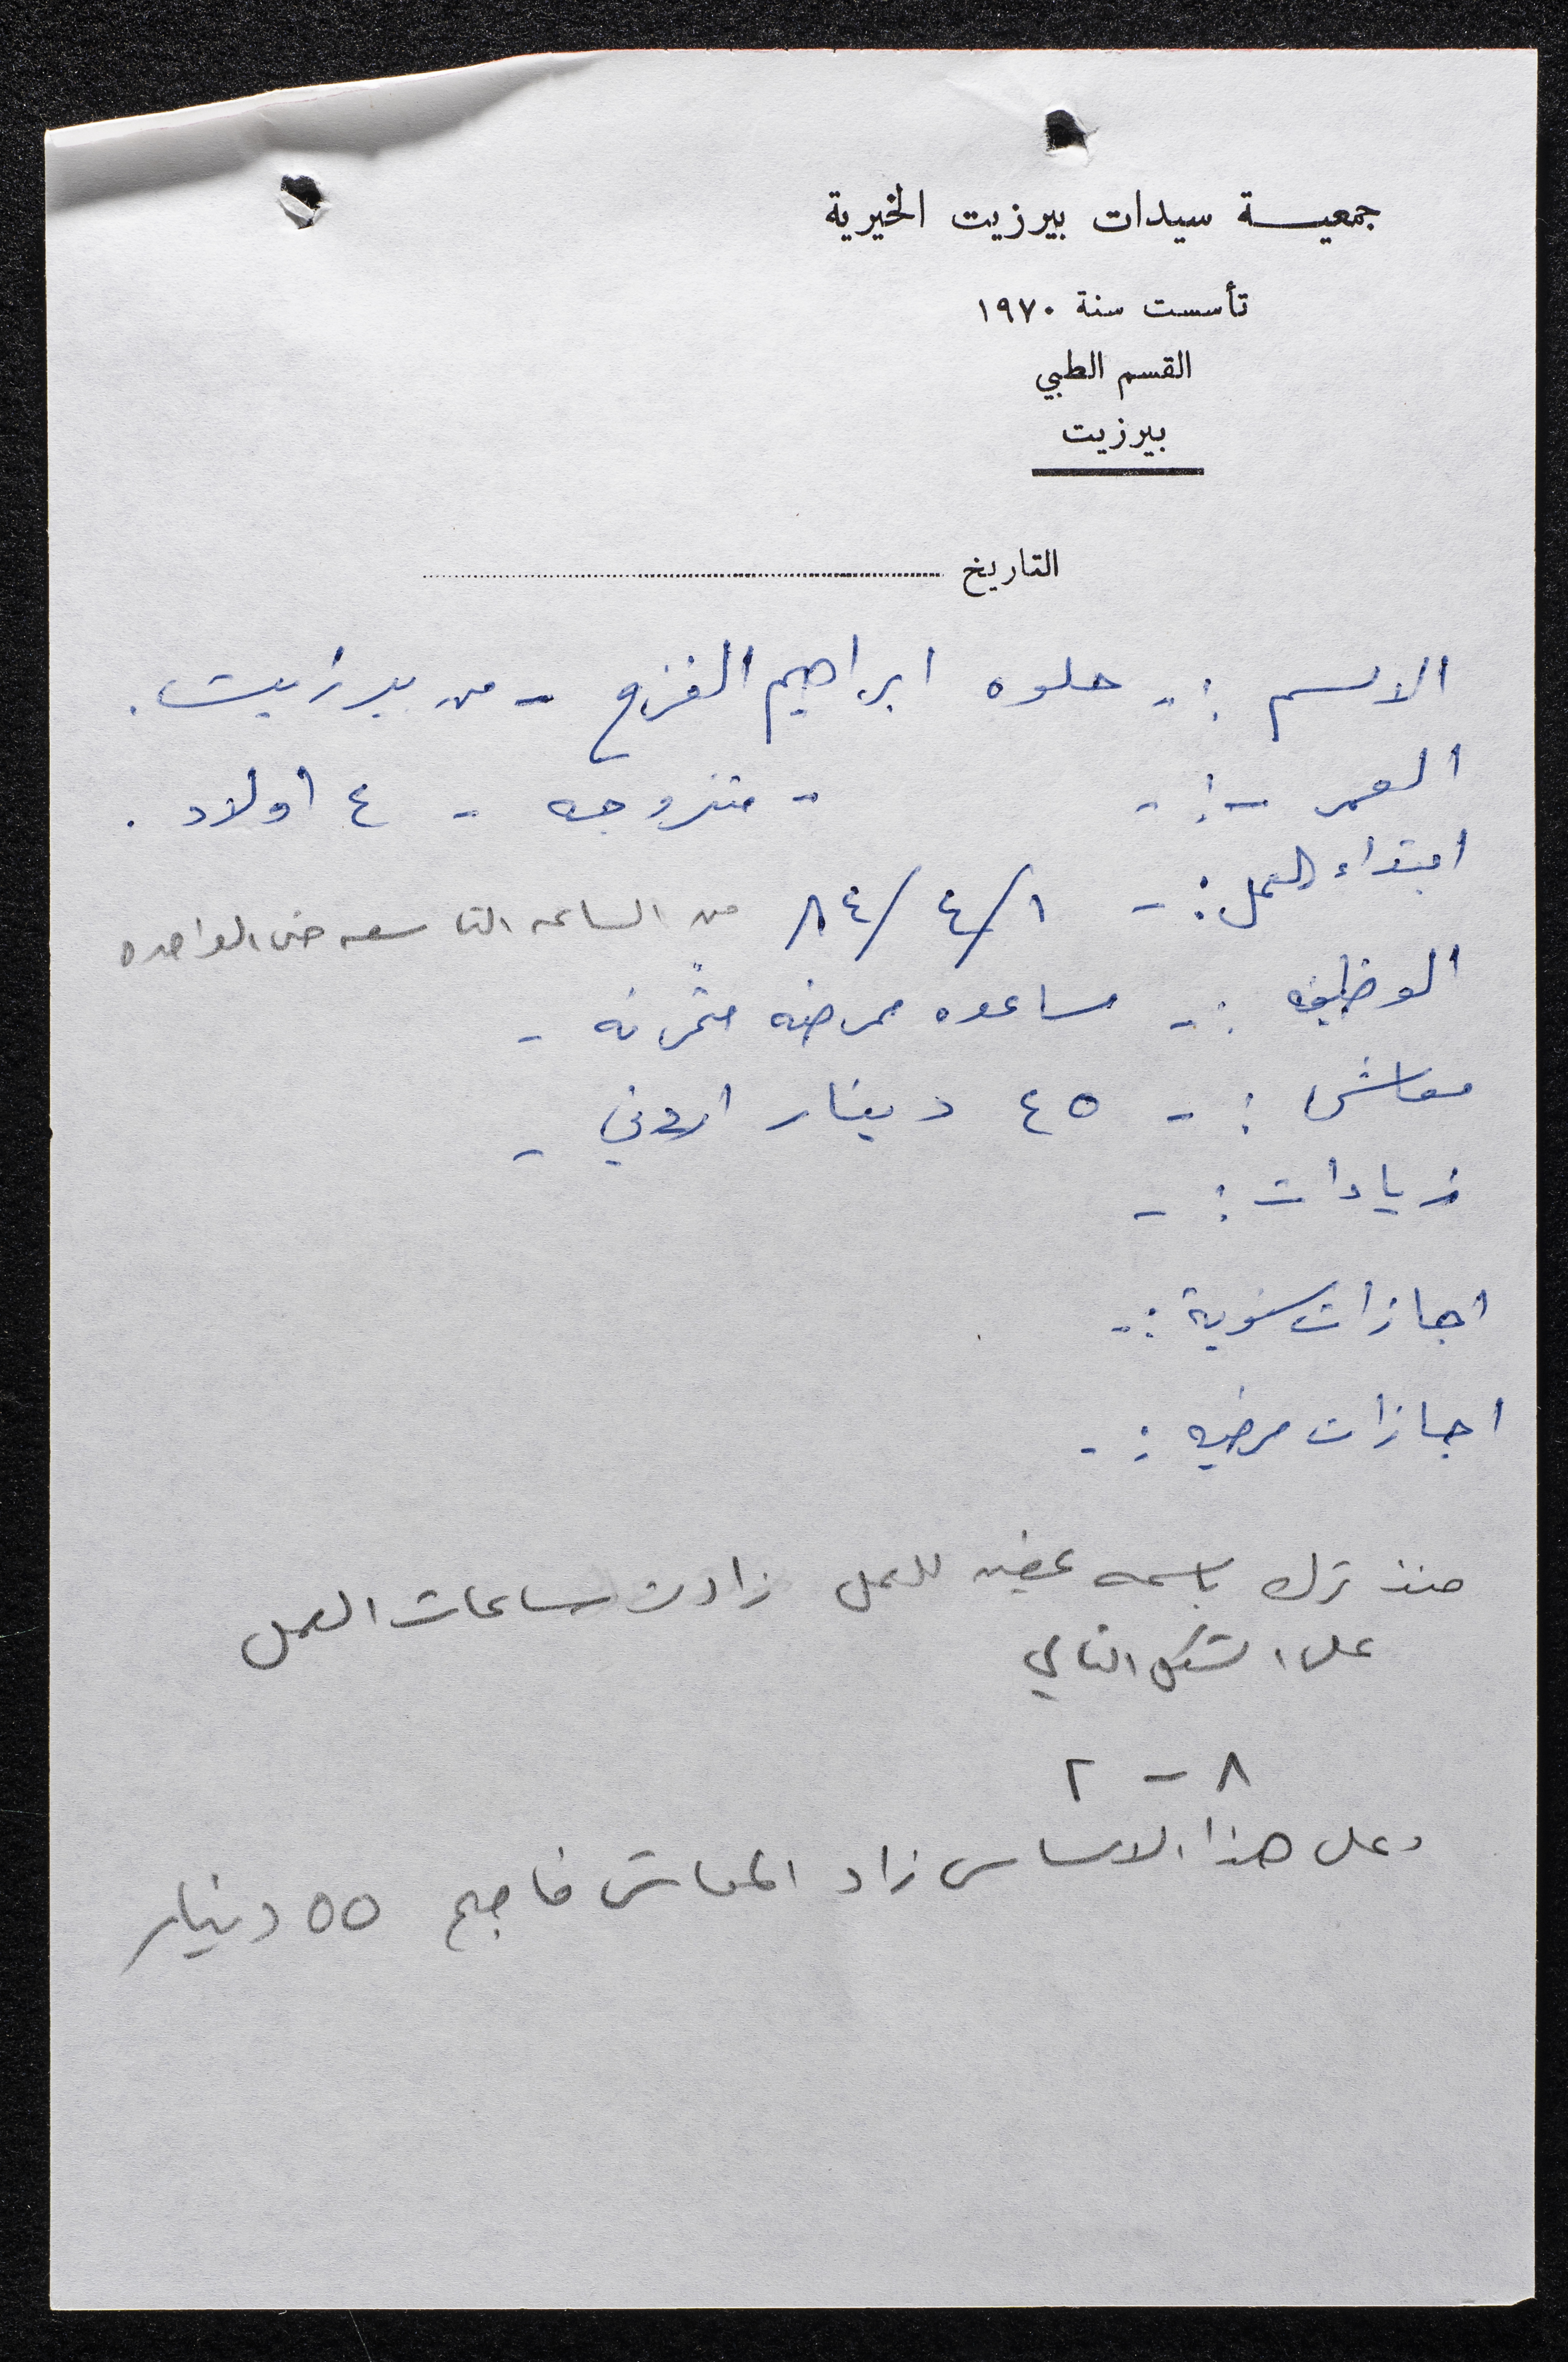 جمعيـــة سيدات بيرزيت الخيرية
تأسست سنة ١٩٧٠
القسم الطبي
بيرزيت
التاريخ
الاسم :- حلوه ابراهيم القزع - من بيرزيت .
العمر :- - متزوجه - ٤ اولاد .
ابتداء العمل :- ٨٤/٤/١ من الساعه التاسعه حتى الواحده
الوظيفه :- مساعده ممرضه متمرنه -
معاش :- ٤٥ دينار اردني -
زيادات :-
اجازات سنوية :-
اجازات مرضيه :-
منذ ترك باسمه للعمل زادت ساعات العمل
على الشكل التالي
٨ - ٢
وعلى هذا الاساس زاد المعاش فاصبح ٥٥ دينار